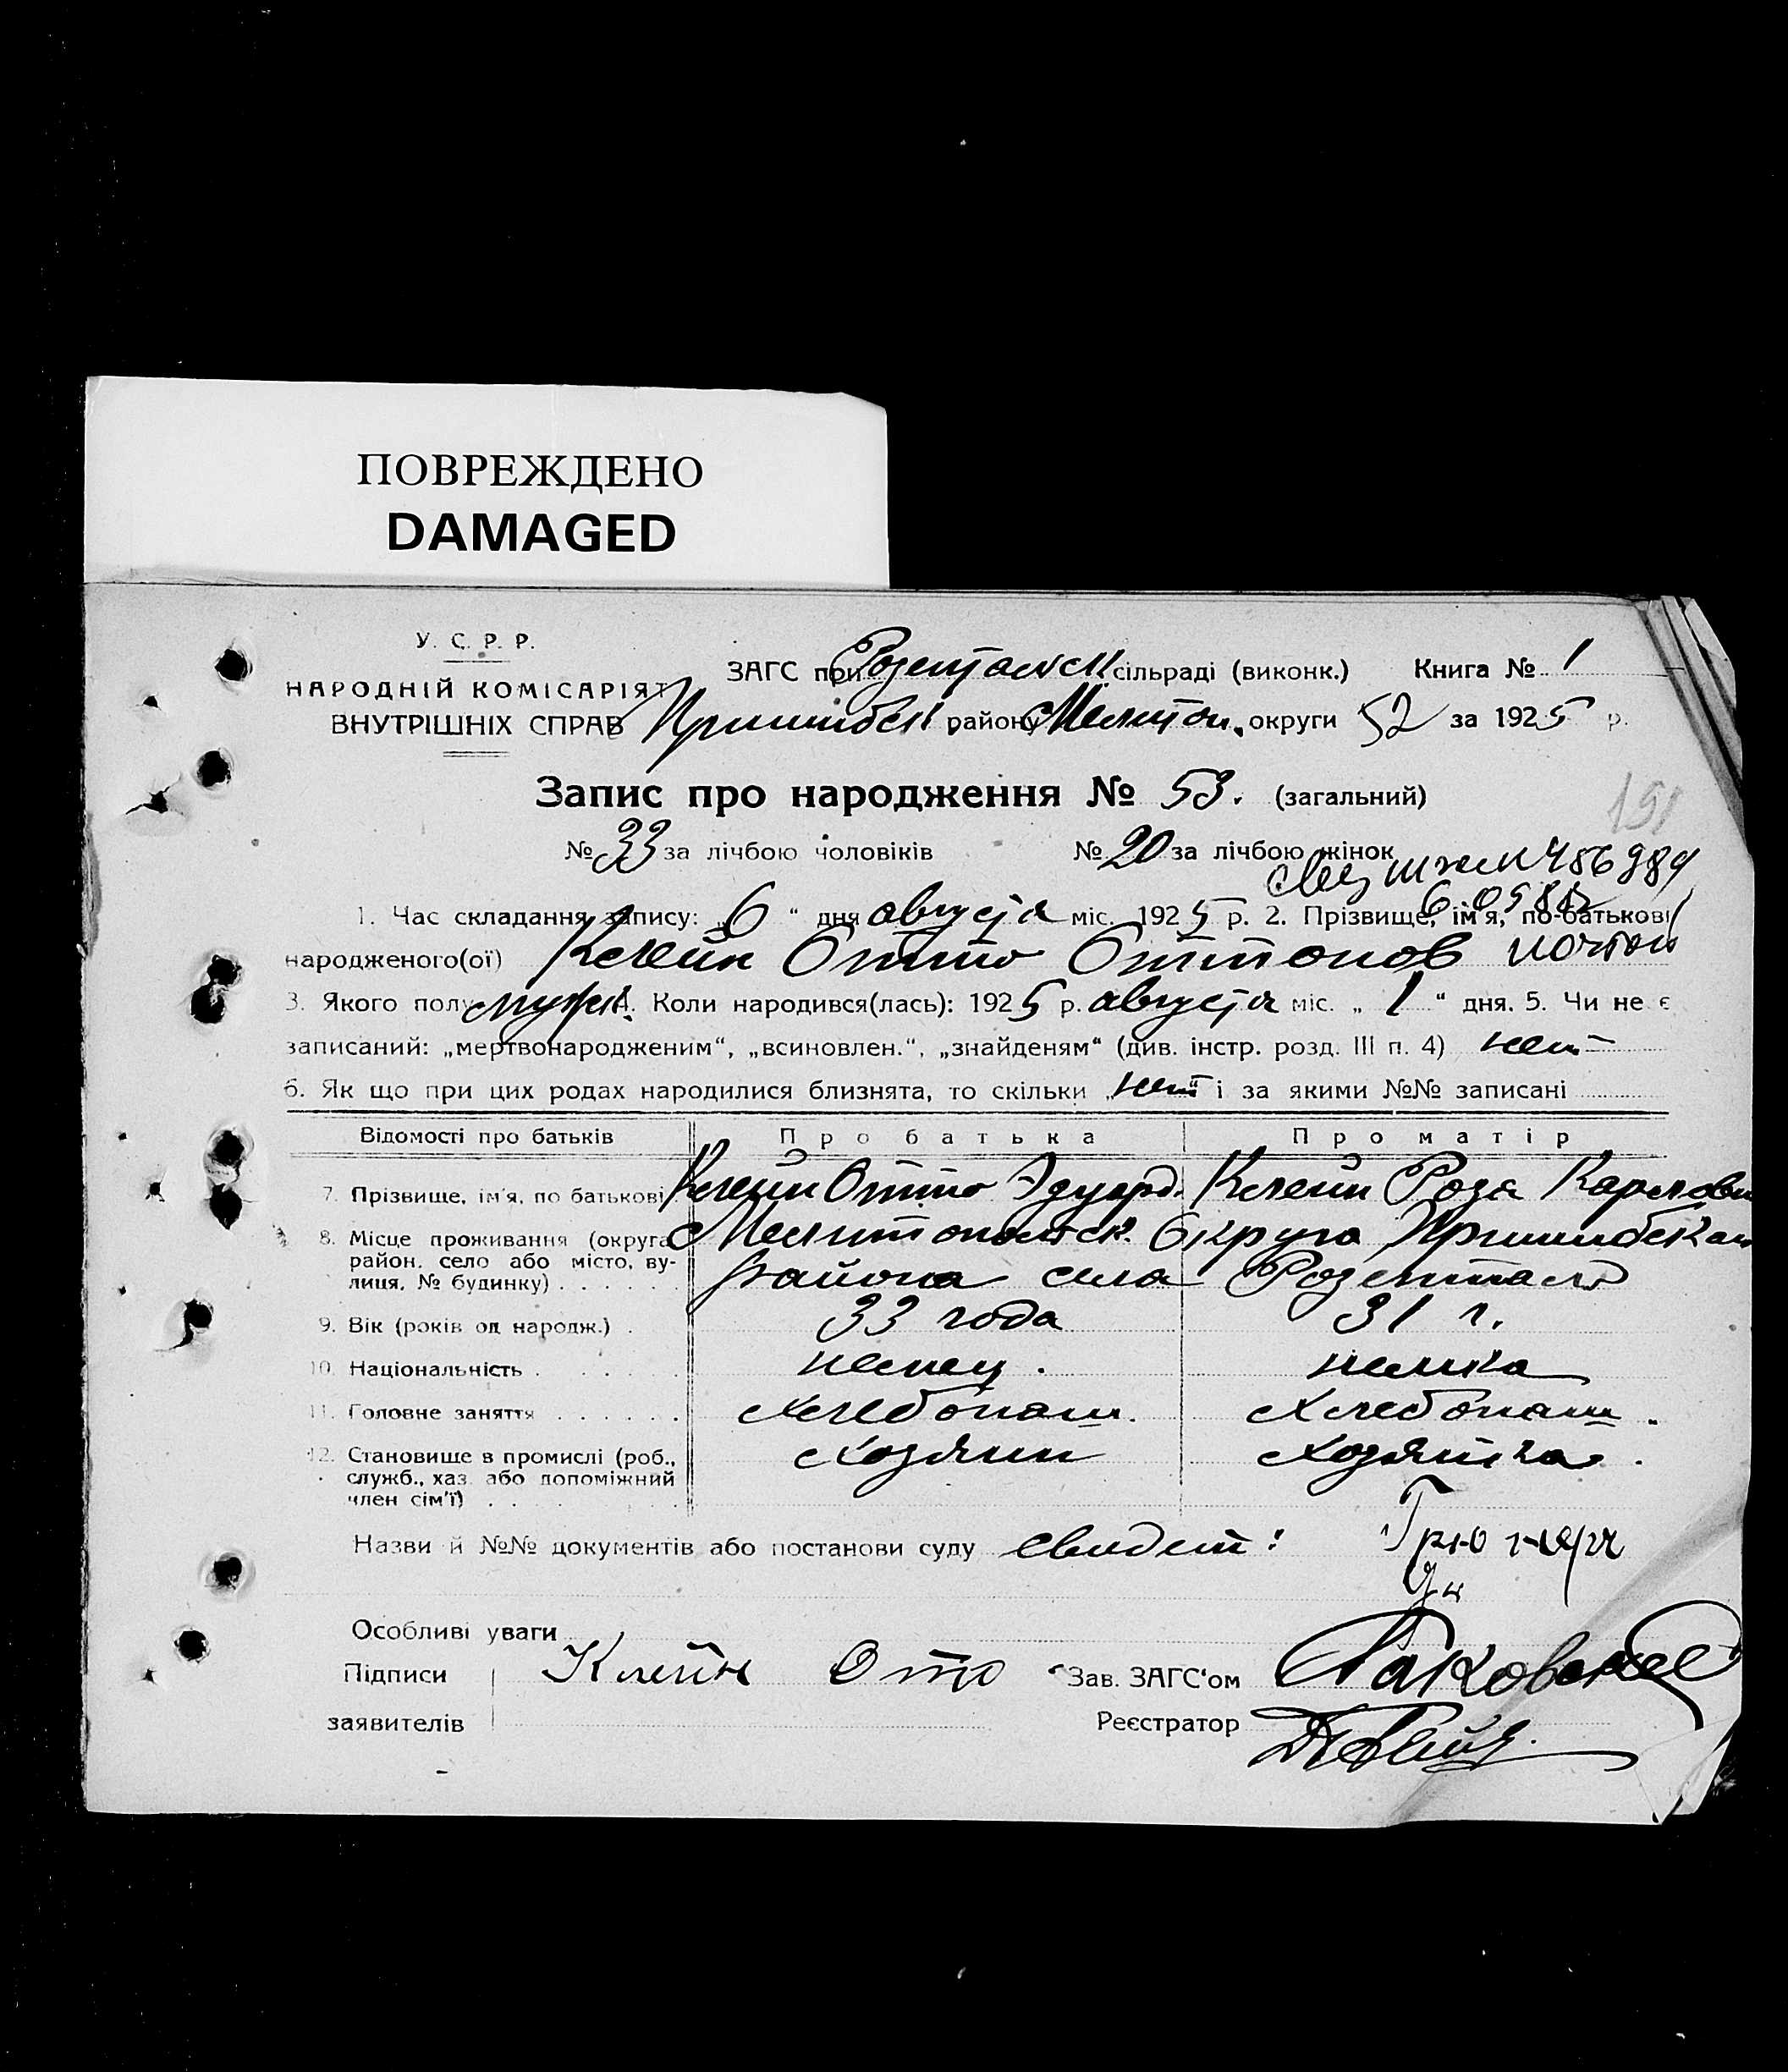 ПОВРЕЖДЕНО
DAMAGED
У. С. Р. Р.
НАРОДНІЙ КОМІСАРІЯТ
ВНУТРІШНІХ СПРАВ
ЗАГС при Розентальск сільраді (виконк.) Книга № 1
Пришибск району Мелитоп. округи 52 за 1925 р.
Запис про народження № 53. (загальний)
151
№ 33 за лічбою чоловіків № 20 за лічбою жінок
1. Час складання запису: „6“ дня августа міс. 1925 р. 2. Прізвище, ім'я, по-батькові
народженого(ої) Клейн Отто Оттонов
3. Якого полу мужск. 4. Коли народився(лась): 1925 р. августа міс. „1“ дня. 5. Чи не є
записаний: „мертвонародженим“, „всиновлен.“, „знайденям“ (див. інстр. розд. III п. 4) нет
6. Як що при цих родах народилися близнята, то скільки „нет“ і за якими №№ записані
Відомості про батьків Про батька Про матір
7. Прізвище, ім'я, по батькові Клейн Отто Эдуард. Клейн Роза Карловн
8. Місце проживання (округа, район, село або місто, вулиця, № будинку) Мелитопольск. Округа Пришибскаго
района села Розенталь
9. Вік (років од народж.) 33 года 31 г.
10. Національність немец. немка
11. Головне заняття хлебопаш. хлебопаш.
12. Становище в промислі (роб., служб., хаз. або допоміжний член сім'ї) хозяин хозяйка.
Назви й №№ документів або постанови суду свидет:
Особливі уваги
Підписи Клейн Отто Зав. ЗАГС'ом
заявителів Реєстратор